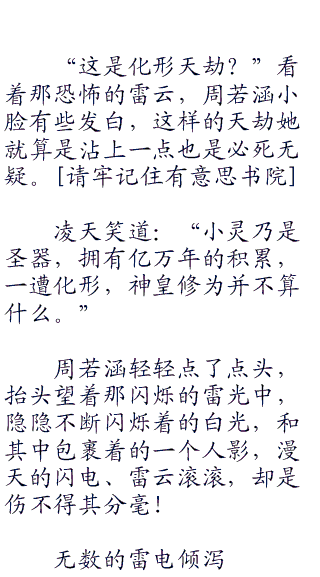 “这是化形天劫？”看
着那恐怖的雷云，周若涵小
脸有些发白，这样的天劫她
就算是沾上一点也是必死无
疑。[请牢记住有意思书院]
凌天笑道：“小灵乃是
圣器，拥有亿万年的积累，
一遭化形，神皇修为并不算
什么。”
周若涵轻轻点了点头，
抬头望着那闪烁的雷光中，
隐隐不断闪烁着的白光，和
其中包裹着的一个人影，漫
天的闪电、雷云滚滚，却是
伤不得其分毫！
无数的雷电倾泻